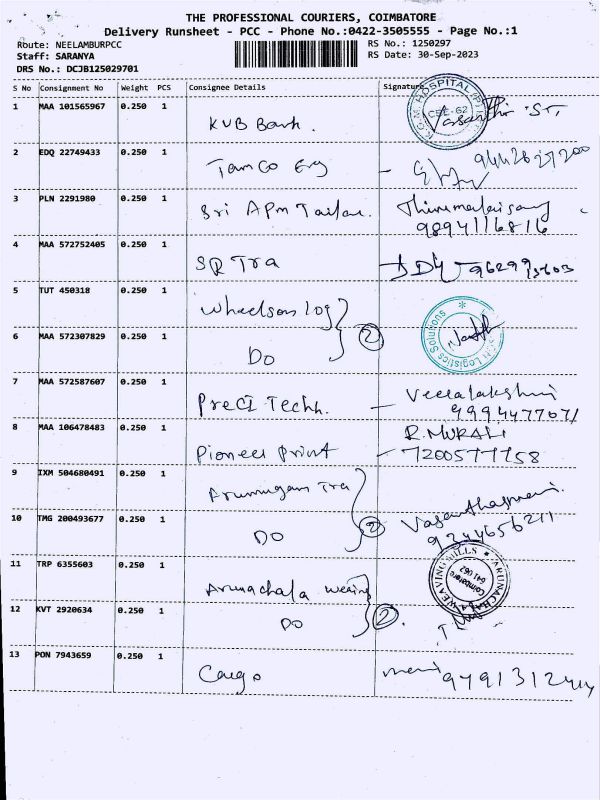 THE PROFESSIONAL COURIERS, COIMBATORE
Delivery Runsheet - PCC - Phone No.:0422-3505555 - Page No.:1
Route: NEELAMBURPCC RS No.: 1250297
Staff: SARANYA RS Date: 30-Sep-2023
DRS No.: DCJB125029701
S No Consignment No Weight PCS Consignee Details Signature
1 MAA 101565967 0.250 1 KVB Bank.
2 EDQ 22749433 0.250 1 Tamco Eng
3 PLN 2291980 0.250 1 Sri APM Tailor. Thirumalaisamy
9894116816
4 MAA 572752405 0.250 1 SR Tra
5 TUT 450318 0.250 1 Wheelsons Log
6 MAA 572307829 0.250 1 Do 2 Logistics Solutions
7 MAA 572587607 0.250 1 Preci Techn. Veeralakshmi
8 MAA 106478483 0.250 1 Pioneer Print R. MURALI
7200577758
9 IXM 504680491 0.250 1 Arumugam Tra
10 TMG 200493677 0.250 1 Do 2 Vasanthamani.
9244656211
11 TRP 6355603 0.250 1 Arunachala Weaving ARUNACHALA WEAVING MILLS Coimbatore 641 062
12 KVT 2920634 0.250 1 Do 2.
13 PON 7943659 0.250 1 Cargo mani